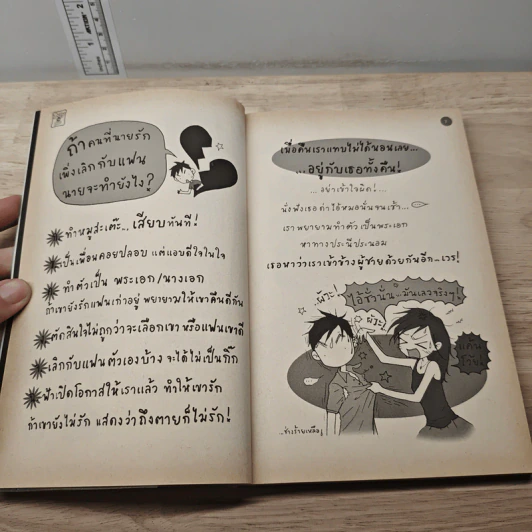 ถ้าคนที่นายรัก
เพิ่งเลิกกับแฟน
นายจะทำยังไง?
ทำหมูสะเต๊ะ... เสียบทันที!
เป็นเพื่อนคอยปลอบ แต่แอบดีใจในใจ
ทำตัวเป็น พระเอก/นางเอก
ถ้าเขายังรักแฟนเก่าอยู่ พยายามให้เขาคืนดีกัน
ตัดสินใจไม่ถูกว่าจะเลือกเขา หรือแฟนเขาดี
เลิกกับแฟนตัวเองบ้าง จะได้ไม่เป็นกิ๊ก
ฟ้าเปิดโอกาสให้เราแล้ว ทำให้เขารัก
ถ้าเขายังไม่รัก แสดงว่าถึงตายก็ไม่รัก!
เมื่อคืนเราแทบไม่ได้นอนเลย...
...อยู่กับเธอทั้งคืน!
...อย่าเข้าใจผิด!...
นั่งฟังเธอด่าไอ้หมอนั่นจนเช้า...
เราพยายามทำตัวเป็นพระเอก
หาทางประนีประนอม
เธอหาว่าเราเข้าข้างผู้ชายด้วยกันอีก...เวร!
ไอ้ชั่วนั่น...มันเลวจริงๆ!
ผัวะ!
ผัวะ!
แค้น
โว้ย!